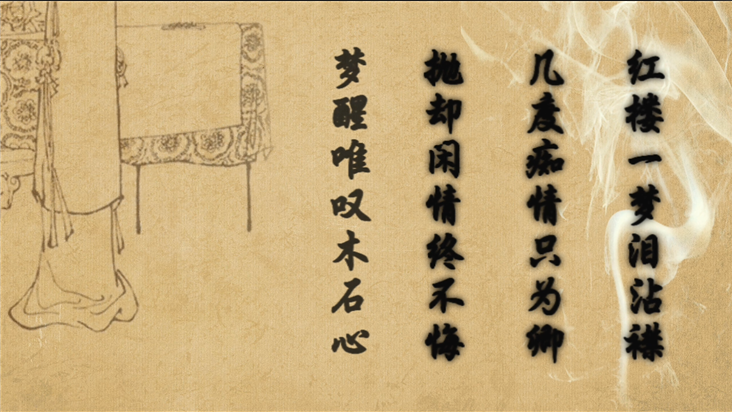 红楼一梦泪沾襟
几度痴情只为卿
抛却闲情终不悔
梦醒唯叹木石心